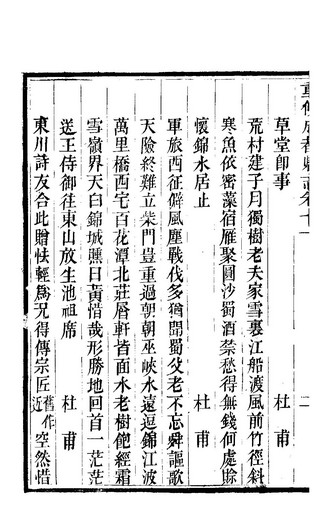 重修成都縣志卷十一
二
草堂即事
杜甫
荒村建子月獨樹老夫家雪裏江船渡風前竹徑斜
寒魚依密藻宿雁聚圓沙蜀酒禁愁得無錢何處賒
懷錦水居止
杜甫
軍旅西征僻風塵戰伐多猶聞蜀父老不忘舜謳歌
天險終難立柴門豈重過朝朝巫峽水遠逗錦江波
萬里橋西宅百花潭北莊層軒皆面水老樹飽經霜
雪嶺界天白錦城曛日黃惜哉形勝地回首一茫茫
送王侍御往東山放生池祖席
杜甫
東川詩友合此贈怯輕為况得傳宗匠近舊作空然惜